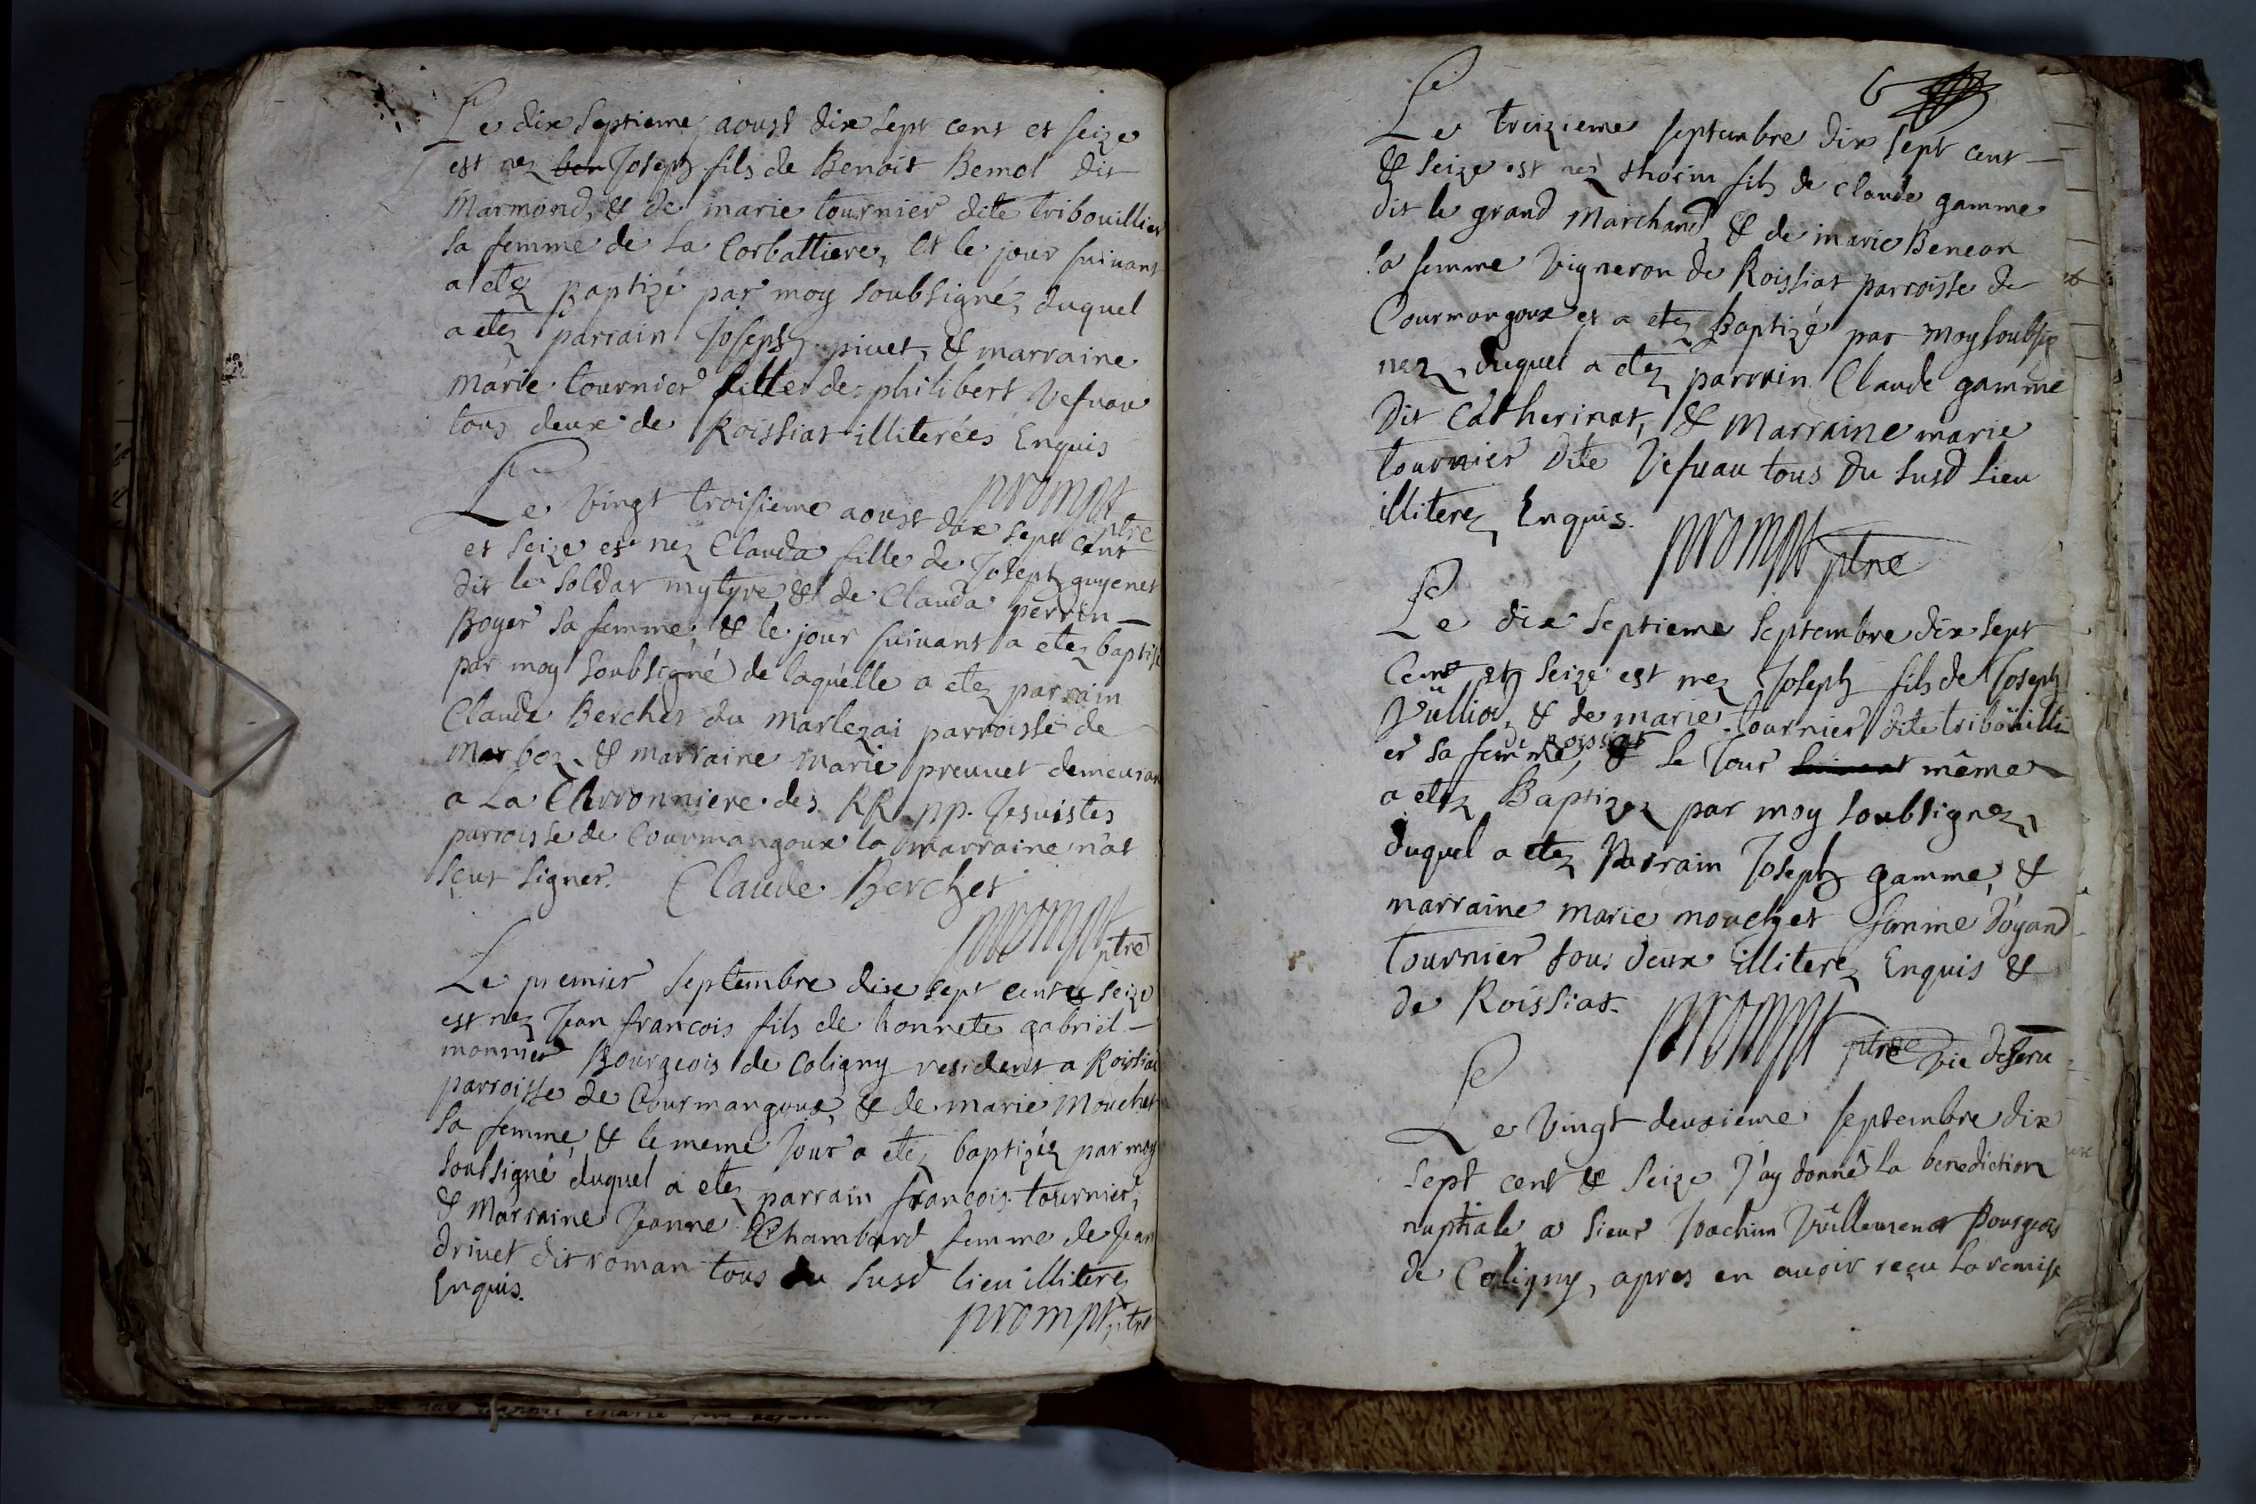 Le dix septieme aoust dix sept cent et seize
est nez ben Joseph fils de Benoit Bemol dit
Marmond, & de marie tournier dite tribouillier
sa femme de la Corbattiere, et le jour suivant
a etez baptizé par moy soubsignéz duquel
a etez parrain Joseph pivet, & marraine
marie tournier de philibert Vefvau
tous deux de Roissiat illiterées Enquis
prompt ptre
Le Vingt troisieme aoust dix sept cent
et seize est nez Clauda fille de Joseph guyenet
dit le soldat mytyre & de Clauda perrin
Boyer sa femme, & le jour suivant a etez baptisé
par moy soubsigné de laquelle a etez parrain
Claude Berchet du Marlezai parroisse de
Marboz, & marraine marie preuvet demeurant
a La Charronniere des RR. pp. Jesuistes
parroisse de Courmangoux la marraine n'at
sçut signer. Claude Berchet
prompt ptre
Le premier septembre dix sept cent & seize
est nez Jean francois fils de honnete gabriel
monnier Bourgeois de Coligny resident a Roissiat
parroisse de Courmangoux, & de marie Mouchet
sa femme, & le meme Jour a etez baptizéz par moy
soubsigné duquel a etez parrain francois tournier,
& Marraine Jeanne Chambard femme de Jean
drivet dit roman tous du susd lieu illiterez
Enquis.
prompt ptre
6
Le treizieme septembre dix sept cent
& seize est nez thorin fils de claude gamme
dit le grand Marchand, & de marie Beneon
sa femme Vigneron de Roissiat parroisse de
Courmangoux et a etez Baptizé par moy soubsig
nez, duquel a etez parrain Claude gamme
dit Catherinat, & Marraine marie
tournier dite Vefvau tous du susd lieu
illiterez Enquis.
prompt ptre
Le dix septieme septembre dix sept
Cent et seize est nez Joseph fils de Joseph
Vüilliod, & de marie tournier dite triboüilli
de roissiat
er sa femme, & le Jour suivant même
a etez Baptizez par moy soubsignez,
duquel a etez Parrain Joseph gamme, &
marraine marie mouchet femme d'oyand
Tournier tous deux illiterez Enquis &
de Roissiat.
prompt ptre vic desserv
Le Vingt deuxieme septembre dix
sept cent & seize J'ay donné la benediction
nuptiale a sieur Joachim Vüillemenot Bourgeois
de Coligny, apres en avoir reçu la remise